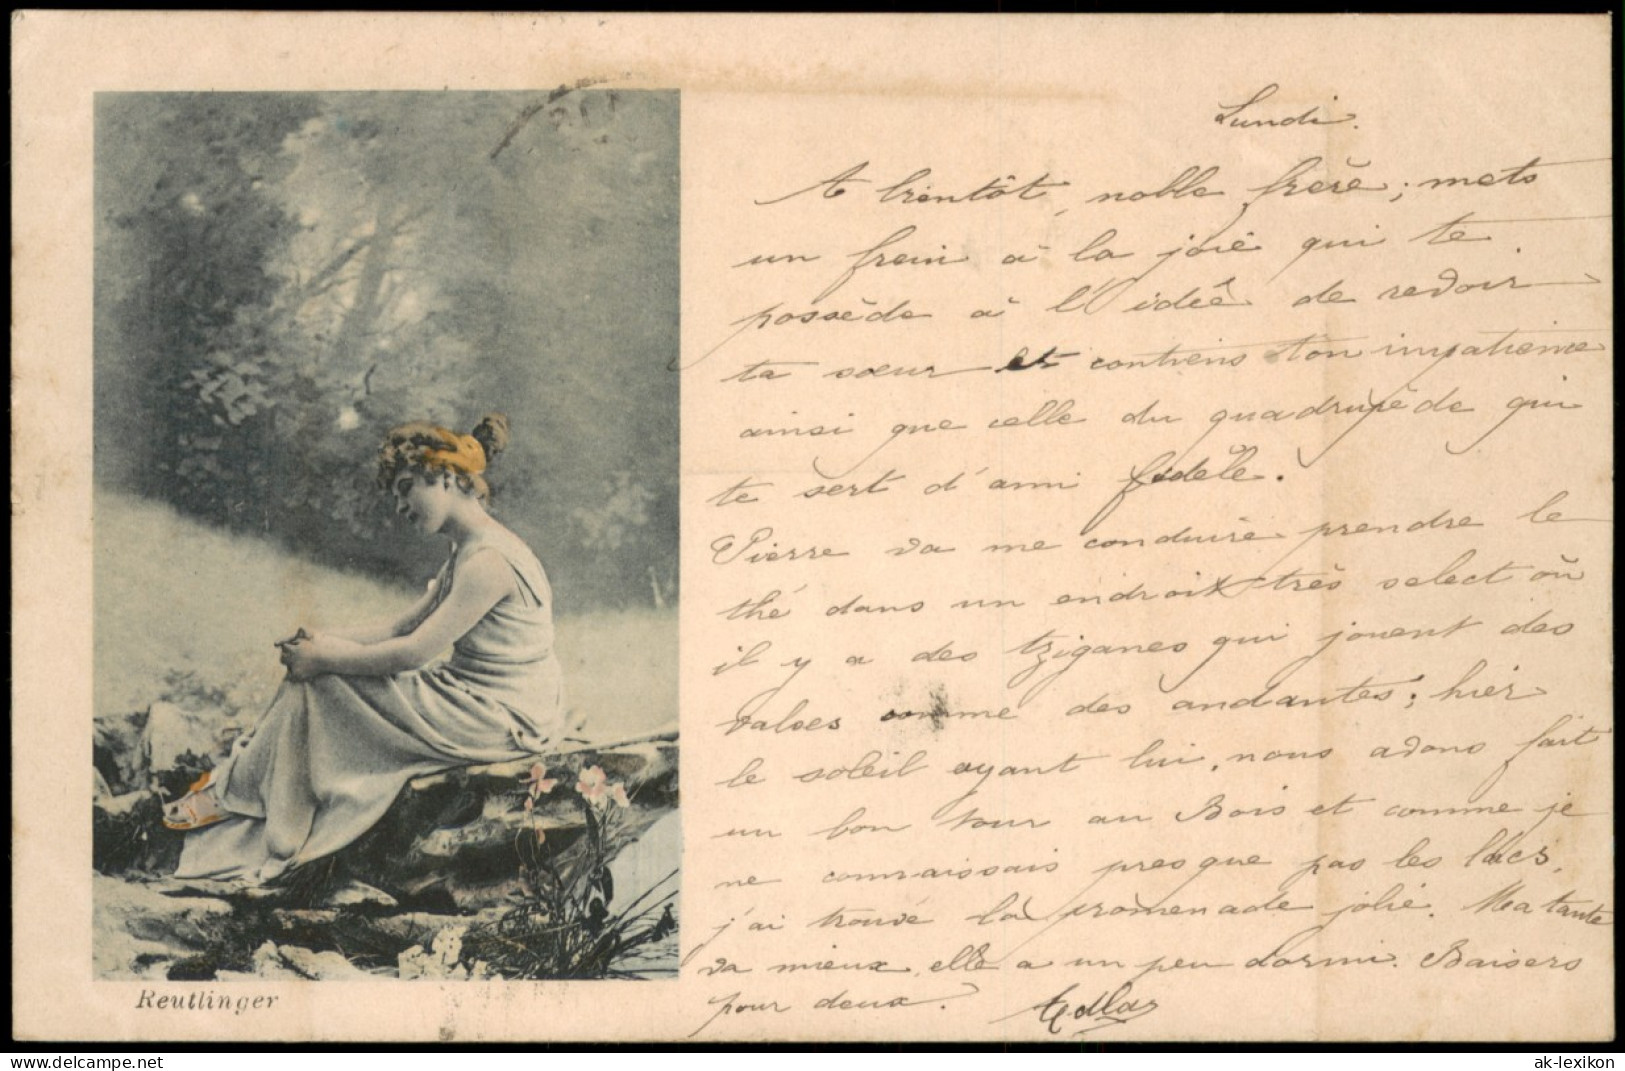 Lundi.
A bientôt, noble frère; mets
un frein à la joie qui te
possède à l'idée de revoir
ta sœur et contiens ton impatience
ainsi que celle du quadrupède qui
te sert d'ami fidèle.
Pierre va me conduire prendre le
thé dans un endroit très select où
il y a des tziganes qui jouent des
valses comme des andantes; hier
le soleil ayant lui, nous avons fait
un bon tour au Bois et comme je
ne connaissais presque pas les lacs,
j'ai trouvé la promenade jolie. Ma tante
va mieux, elle a un peu dormi. Baisers
pour deux.
Reutlinger
www.delcampe.net
ak-lexikon